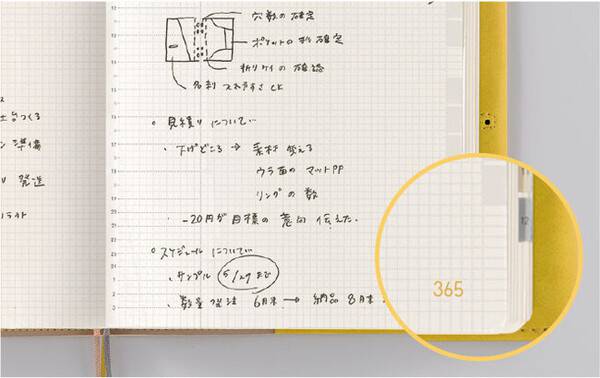 穴数の確定
ポケットの形確定
折りケイの確認
名刺 入れやすさ CK
土台つくる
準備
発送
イラスト
○ 見積りについて
・下げどころ → 素材 使える
ウラ面のマットPP
リングの数
・-20円が目標の意向 伝えた。
○ スケジュールについて
・サンプル 5/29まで
・数量発注 6月末 → 納品 8月末
12
365